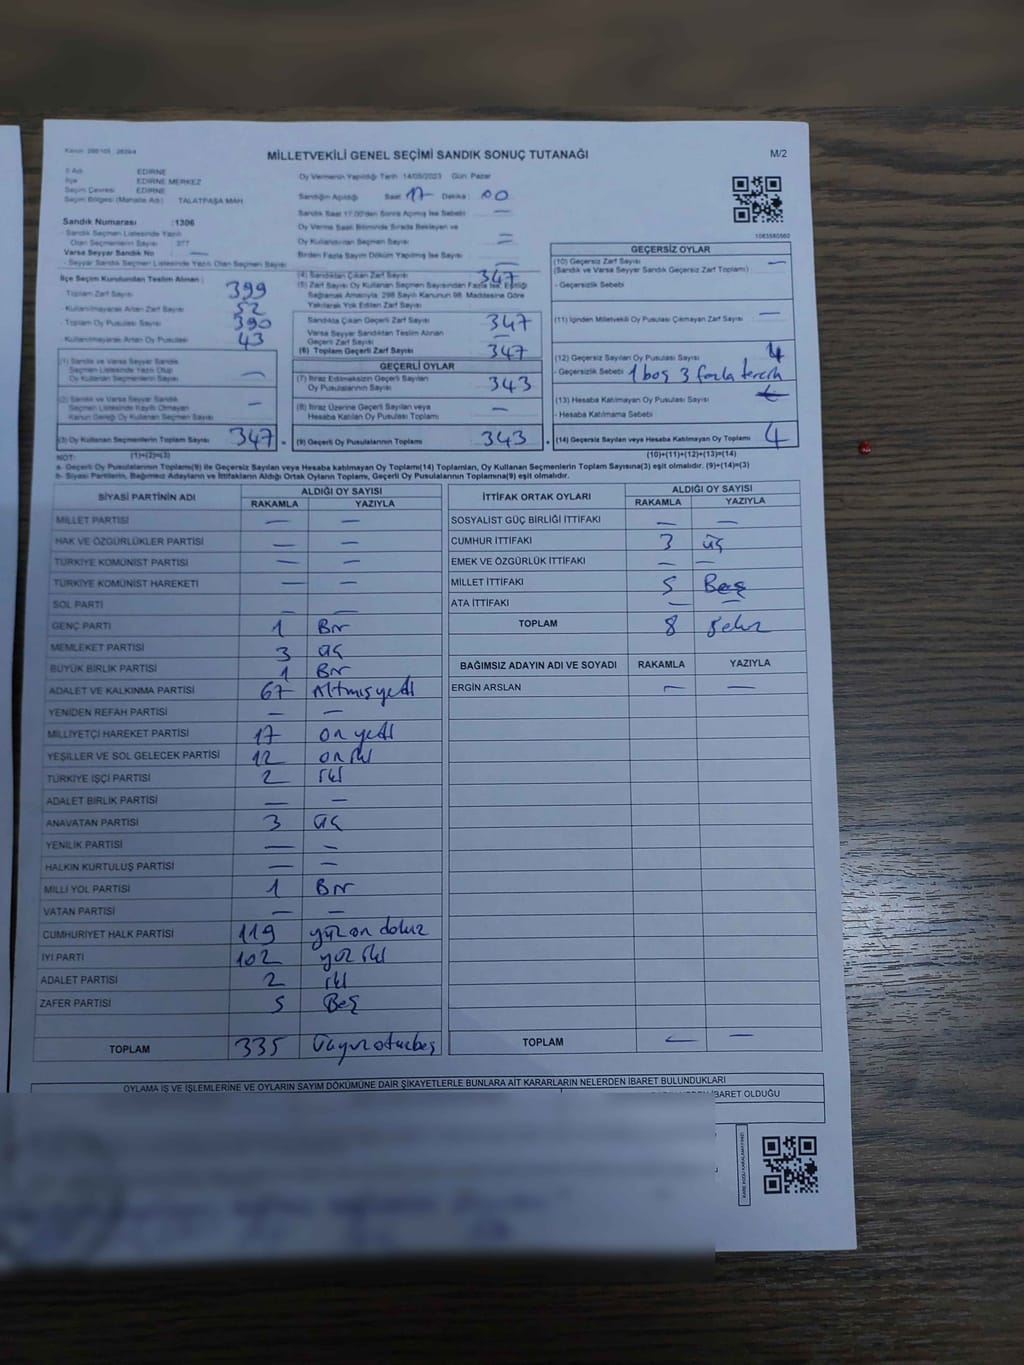 MİLLETVEKİLİ GENEL SEÇİMİ SANDIK SONUÇ TUTANAĞI
M/2
İl Adı EDİRNE
İlçe EDİRNE MERKEZ
Seçim Çevresi EDİRNE
Seçim Bölgesi (Mahalle Adı) TALATPAŞA MAH
Sandık Numarası :1306
Sandık Seçmen Listesinde Yazılı
Olan Seçmenlerin Sayısı : 377
Varsa Seyyar Sandık No —
Seyyar Sandık Seçmen Listesinde Yazılı Olan Seçmen Sayısı
Oy Vermenin Yapıldığı Tarih :14/05/2023 Gün: Pazar
Sandığın Açıldığı Saat: 17 Dakika: 00
Sandık Saat 17:00'den Sonra Açılmış İse Sebebi —
Oy Verme Saati Bitiminde Sırada Bekleyen ve
Oy Kullandırılan Seçmen Sayısı
Birden Fazla Sayım Döküm Yapılmış İse Sayısı —
1083580560
İlçe Seçim Kurulundan Teslim Alınan :
Toplam Zarf Sayısı 399
Kullanılmayarak Artan Zarf Sayısı 52
Toplam Oy Pusulası Sayısı 390
Kullanılmayarak Artan Oy Pusulası 43
(1) Sandık ve Varsa Seyyar Sandık
Seçmen Listesinde Yazılı Olup
Oy Kullanan Seçmenlerin Sayısı —
(2) Sandık ve Varsa Seyyar Sandık
Seçmen Listesinde Kayıtlı Olmayan
Kanun Gereği Oy Kullanan Seçmen Sayısı —
(3) Oy Kullanan Seçmenlerin Toplam Sayısı 347
(1)+(2)=(3)
(4) Sandıktan Çıkan Zarf Sayısı 347
(5) Zarf Sayısı Oy Kullanan Seçmen Sayısından Fazla İse, Eşitliği
Sağlamak Amacıyla, 298 Sayılı Kanunun 98. Maddesine Göre
Yakılarak Yok Edilen Zarf Sayısı
Sandıkta Çıkan Geçerli Zarf Sayısı 347
Varsa Seyyar Sandıktan Teslim Alınan
Geçerli Zarf Sayısı —
(6) Toplam Geçerli Zarf Sayısı 347
GEÇERLİ OYLAR
(7) İtiraz Edilmeksizin Geçerli Sayılan
Oy Pusulalarının Sayısı 343
(8) İtiraz Üzerine Geçerli Sayılan veya
Hesaba Katılan Oy Pusulası Toplamı —
(9) Geçerli Oy Pusulalarının Toplamı 343
GEÇERSİZ OYLAR
(10) Geçersiz Zarf Sayısı —
(Sandık ve Varsa Seyyar Sandık Geçersiz Zarf Toplamı)
- Geçersizlik Sebebi
(11) İçinden Milletvekili Oy Pusulası Çıkmayan Zarf Sayısı —
(12) Geçersiz Sayılan Oy Pusulası Sayısı 4
- Geçersizlik Sebebi 1 boş 3 fazla tercih
(13) Hesaba Katılmayan Oy Pusulası Sayısı
- Hesaba Katılmama Sebebi
(14) Geçersiz Sayılan veya Hesaba Katılmayan Oy Toplamı 4
(10)+(11)+(12)+(13)=(14)
NOT:
a- Geçerli Oy Pusulalarının Toplamı(9) ile Geçersiz Sayılan veya Hesaba katılmayan Oy Toplamı(14) Toplamları, Oy Kullanan Seçmenlerin Toplam Sayısına(3) eşit olmalıdır. (9)+(14)=(3)
b- Siyasi Partilerin, Bağımsız Adayların ve İttifakların Aldığı Ortak Oyların Toplamı, Geçerli Oy Pusulalarının Toplamına(9) eşit olmalıdır.
SİYASİ PARTİNİN ADI ALDIĞI OY SAYISI
RAKAMLA YAZIYLA
MİLLET PARTİSİ — —
HAK VE ÖZGÜRLÜKLER PARTİSİ — —
TÜRKİYE KOMÜNİST PARTİSİ — —
TÜRKİYE KOMÜNİST HAREKETİ — —
SOL PARTİ — —
GENÇ PARTİ 1 Bir
MEMLEKET PARTİSİ 3 üç
BÜYÜK BİRLİK PARTİSİ 1 Bir
ADALET VE KALKINMA PARTİSİ 67 Altmışyedi
YENİDEN REFAH PARTİSİ — —
MİLLİYETÇİ HAREKET PARTİSİ 17 on yedi
YEŞİLLER VE SOL GELECEK PARTİSİ 12 on iki
TÜRKİYE İŞÇİ PARTİSİ 2 iki
ADALET BİRLİK PARTİSİ — —
ANAVATAN PARTİSİ 3 üç
YENİLİK PARTİSİ — —
HALKIN KURTULUŞ PARTİSİ — —
MİLLİ YOL PARTİSİ 1 Bir
VATAN PARTİSİ — —
CUMHURİYET HALK PARTİSİ 119 yüz on dokuz
İYİ PARTİ 102 yüz iki
ADALET PARTİSİ 2 iki
ZAFER PARTİSİ 5 Beş
TOPLAM 335 üçyüz otuzbeş
İTTİFAK ORTAK OYLARI ALDIĞI OY SAYISI
RAKAMLA YAZIYLA
SOSYALİST GÜÇ BİRLİĞİ İTTİFAKI — —
CUMHUR İTTİFAKI 3 üç
EMEK VE ÖZGÜRLÜK İTTİFAKI — —
MİLLET İTTİFAKI 5 Beş
ATA İTTİFAKI — —
TOPLAM 8 sekiz
BAĞIMSIZ ADAYIN ADI VE SOYADI RAKAMLA YAZIYLA
ERGİN ARSLAN — —
TOPLAM — —
OYLAMA İŞ VE İŞLEMLERİNE VE OYLARIN SAYIM DÖKÜMÜNE DAİR ŞİKAYETLERLE BUNLARA AİT KARARLARIN NELERDEN İBARET BULUNDUKLARI
İBARET OLDUĞU